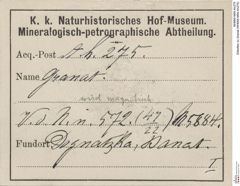 K. k. Naturhistorisches Hof-Museum.
Mineralogisch-petrographische Abtheilung.
Acq.-Post A.h. 275.
Name Granat.
wird magnetisch
V. d. N. n. 572 (47/22) A5884.
Fundort Dognatzka, Banat.
I